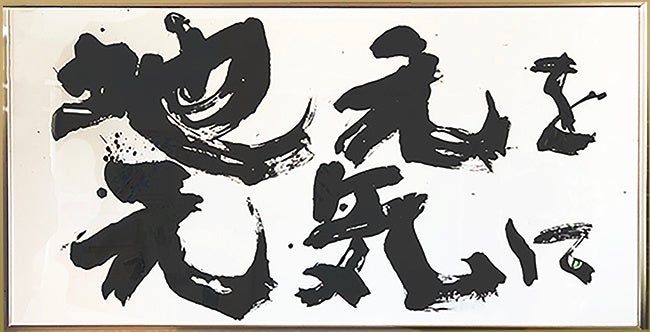 地元を
元気に